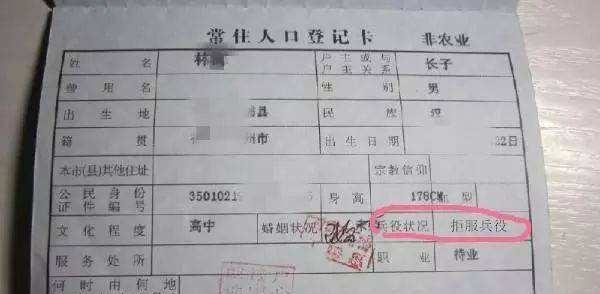 常住人口登记卡 非农业
姓名 林 户主或与户主关系 长子
曾用名 性别 男
出生地 县 民族
籍贯 州市 出生日期 22日
本市(县)其他住址 宗教信仰
公民身份证件编号 3501021 身高 178CM 血型
文化程度 高中 婚姻状况 未 兵役状况 拒服兵役
服务处所 职业 待业
何时由何地